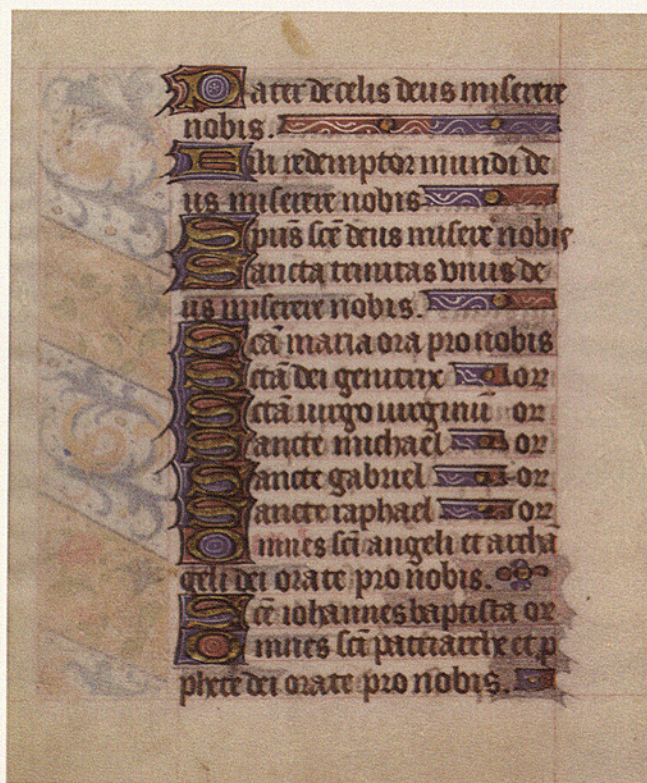 Pater de celis deus miserere
nobis.
Fili redemptor mundi de
us miserere nobis
Spūs scē deus misere nobis
Sancta trinitas vnus de
us miserere nobis.
Scā maria ora pro nobis
Sctā dei genitrix or
Sctā uirgo uirginū or
Sancte michael or
Sancte gabriel or
Sancte raphael or
Omnes scī angeli et archā
geli dei orate pro nobis.
Scē iohannes baptista or
Omnes scī patriarche et p
phete dei orate pro nobis.